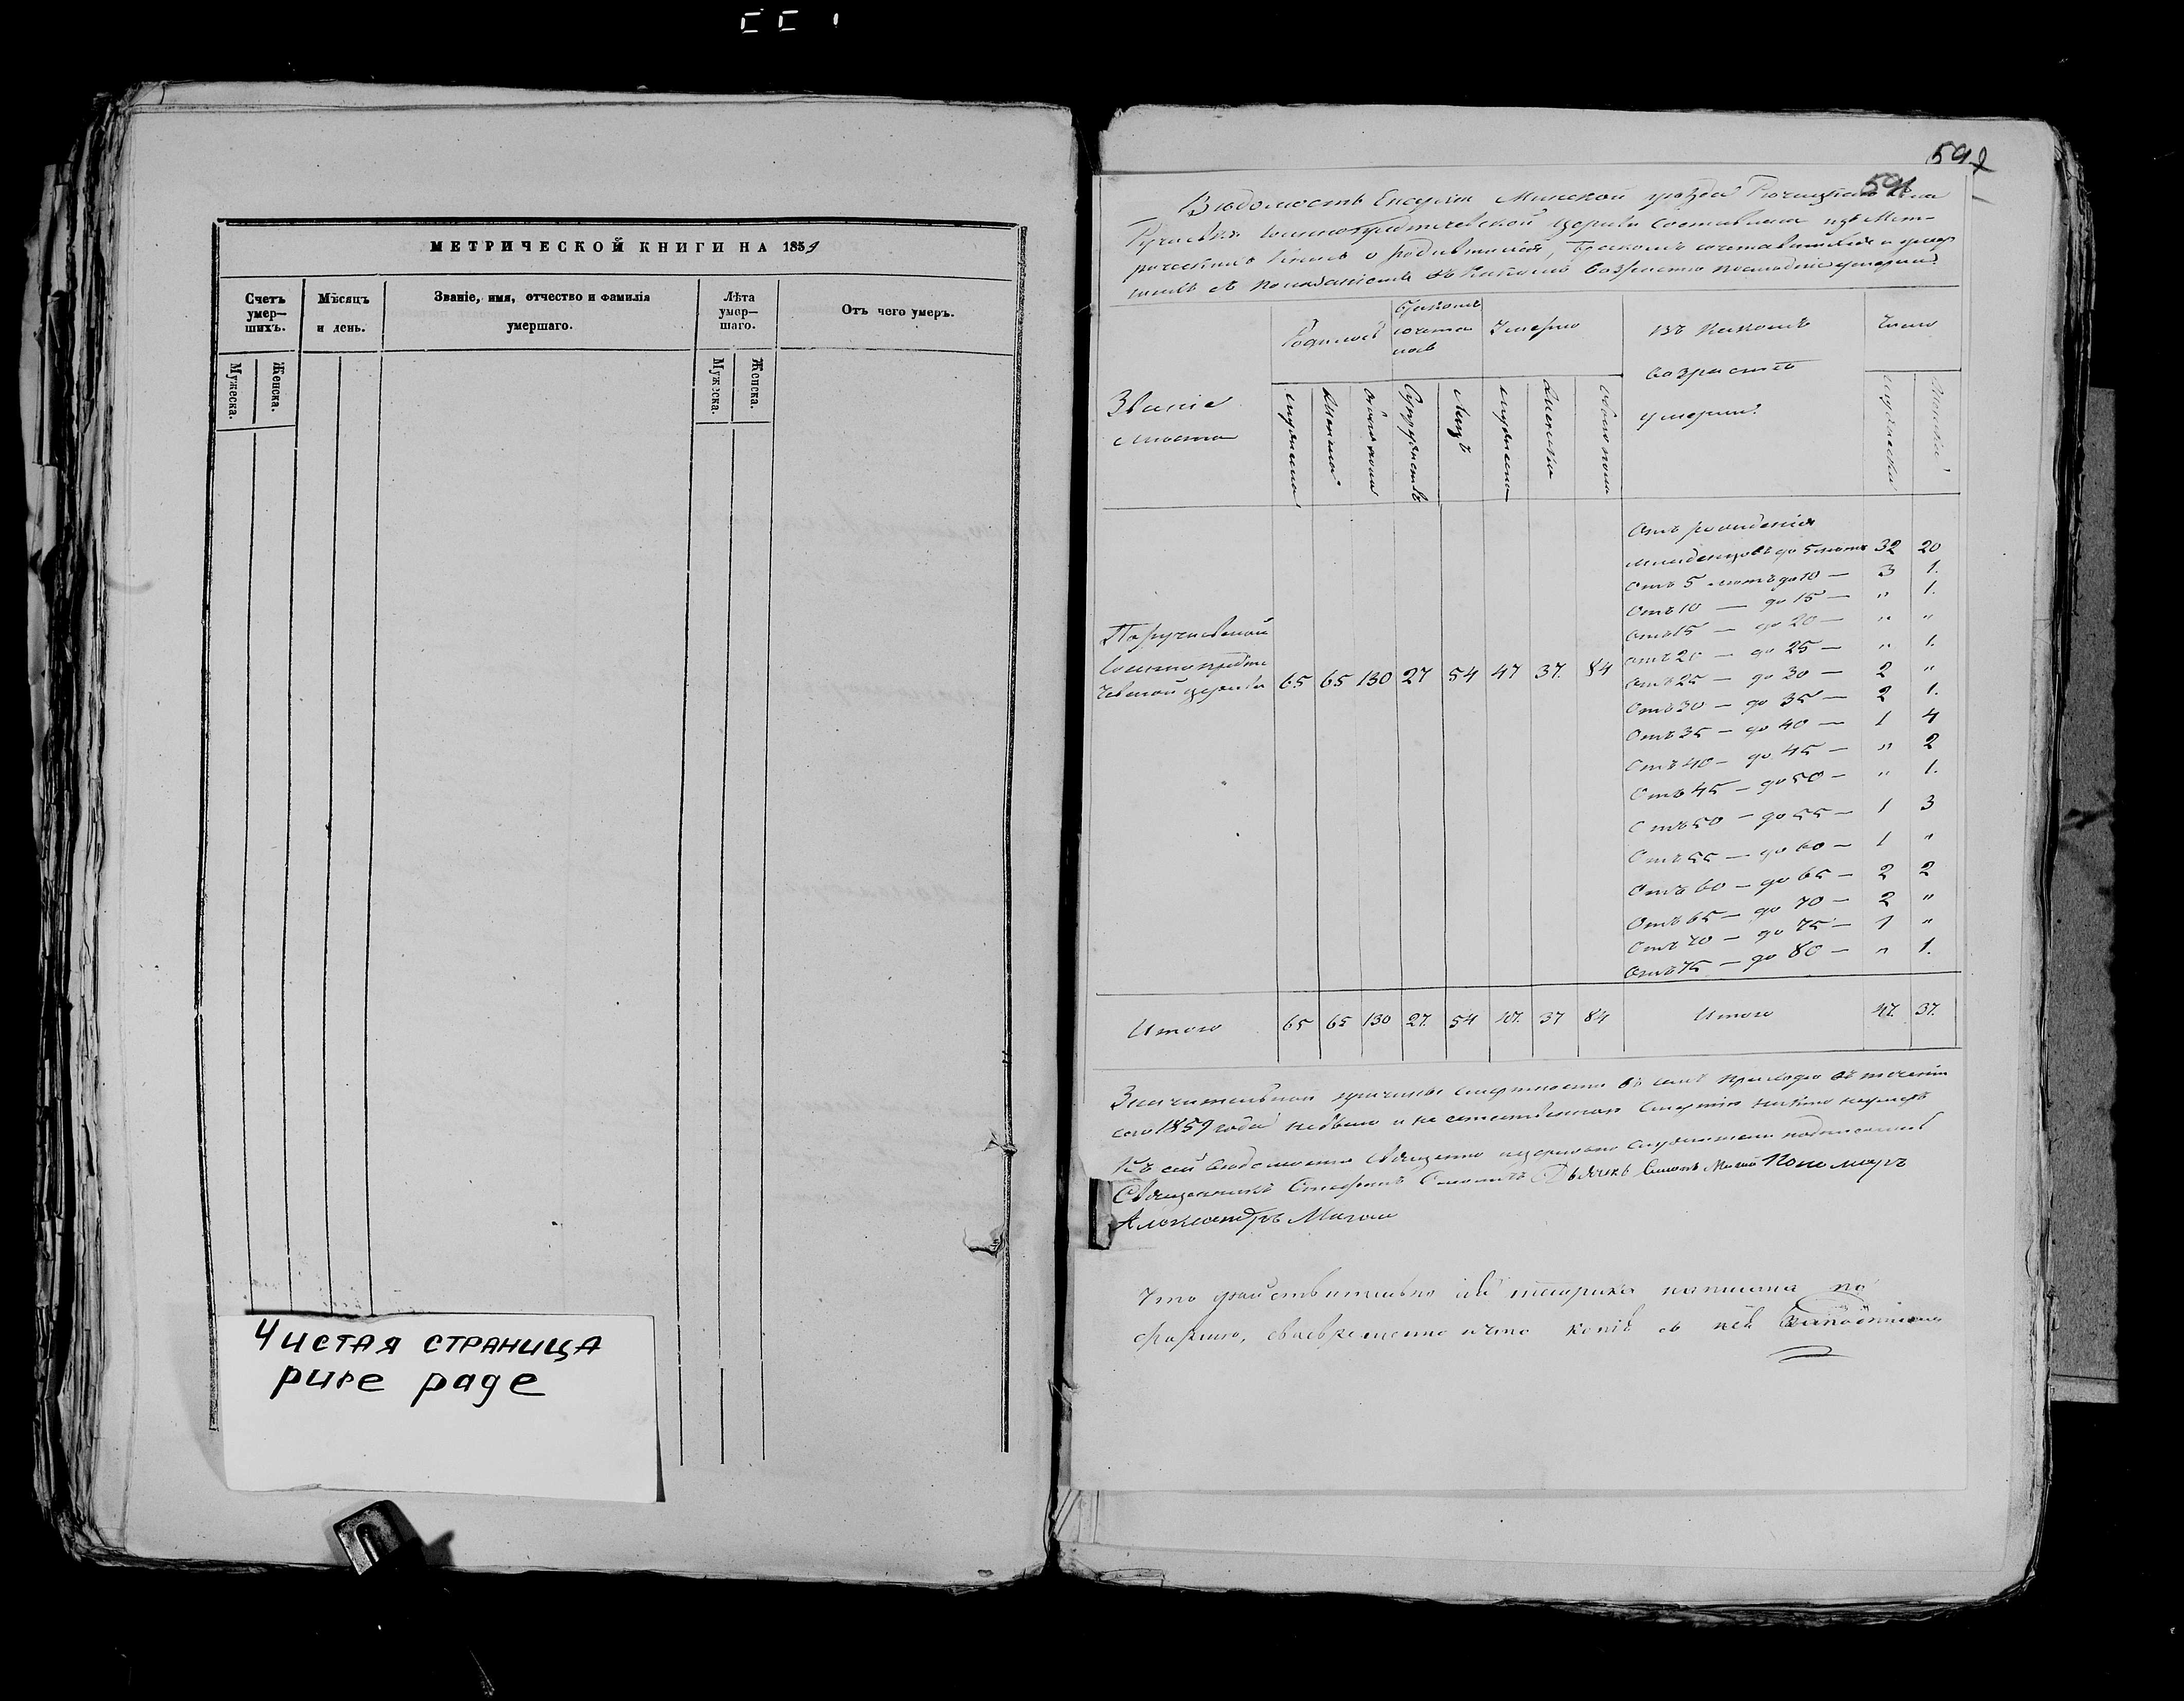 МЕТРИЧЕСКОЙ КНИГИ НА 1859
Счетъ умер—шихъ.
Мѣсяцъ и день.
Званіе, имя, отчество и фамилія умершаго.
Лѣта умер—шаго.
Отъ чего умеръ.
Мужеска.
Женска.
Мужеска.
Женска.
Чистая страница
pure page
592
591
Вѣдомость Минской уѣзда
церкви составлена изъ Мет-
рическихъ книгъ о родившихся, бракомъ сочетавшихся и умер
шихъ въ какомъ возрастѣ
Званіе мѣста
Родилось
Бракомъ сочета лось
Умерло
Въ какомъ возрастѣ умерли
Число
мужеска
женска
обоего пола
Супружествъ
Лицъ
мужеска
женска
обоего пола
мужеска
женска
Отъ рожденія
младенцовъ до 5 лѣтъ 32 20
Отъ 5 лѣтъ до 10 — 3 1.
Отъ 10 — до 15 — " 1.
Отъ 15 — до 20 — " "
Отъ 20 — до 25 — " 1.
Отъ 25 — до 30 — 2 "
Отъ 30 — до 35 — 2 1.
Отъ 35 — до 40 — 1 4
Отъ 40 — до 45 — " 2
Отъ 45 — до 50 — " 1.
Отъ 50 — до 55 — 1 3
Отъ 55 — до 60 — 1 "
Отъ 60 — до 65 — 2 2
Отъ 65 — до 70 — 2 "
Отъ 70 — до 75 — 1 "
Отъ 75 — до 80 — " 1.
церкви 65 65 130 27 54 47 37. 84
Итого 65 65 130 27. 54 47. 37 84 Итого 47. 37.
Значительной причины смертности въ семъ приходѣ въ теченіи
сего 1859 года небыло и не естественною смертію никто неумеръ
Къ сей вѣдомости священно и церковно служители подписались
Священникъ Дьячекъ Пономарь
Александръ
Что дѣйствительно написана по
формѣ, своевременно и что копія съ ней